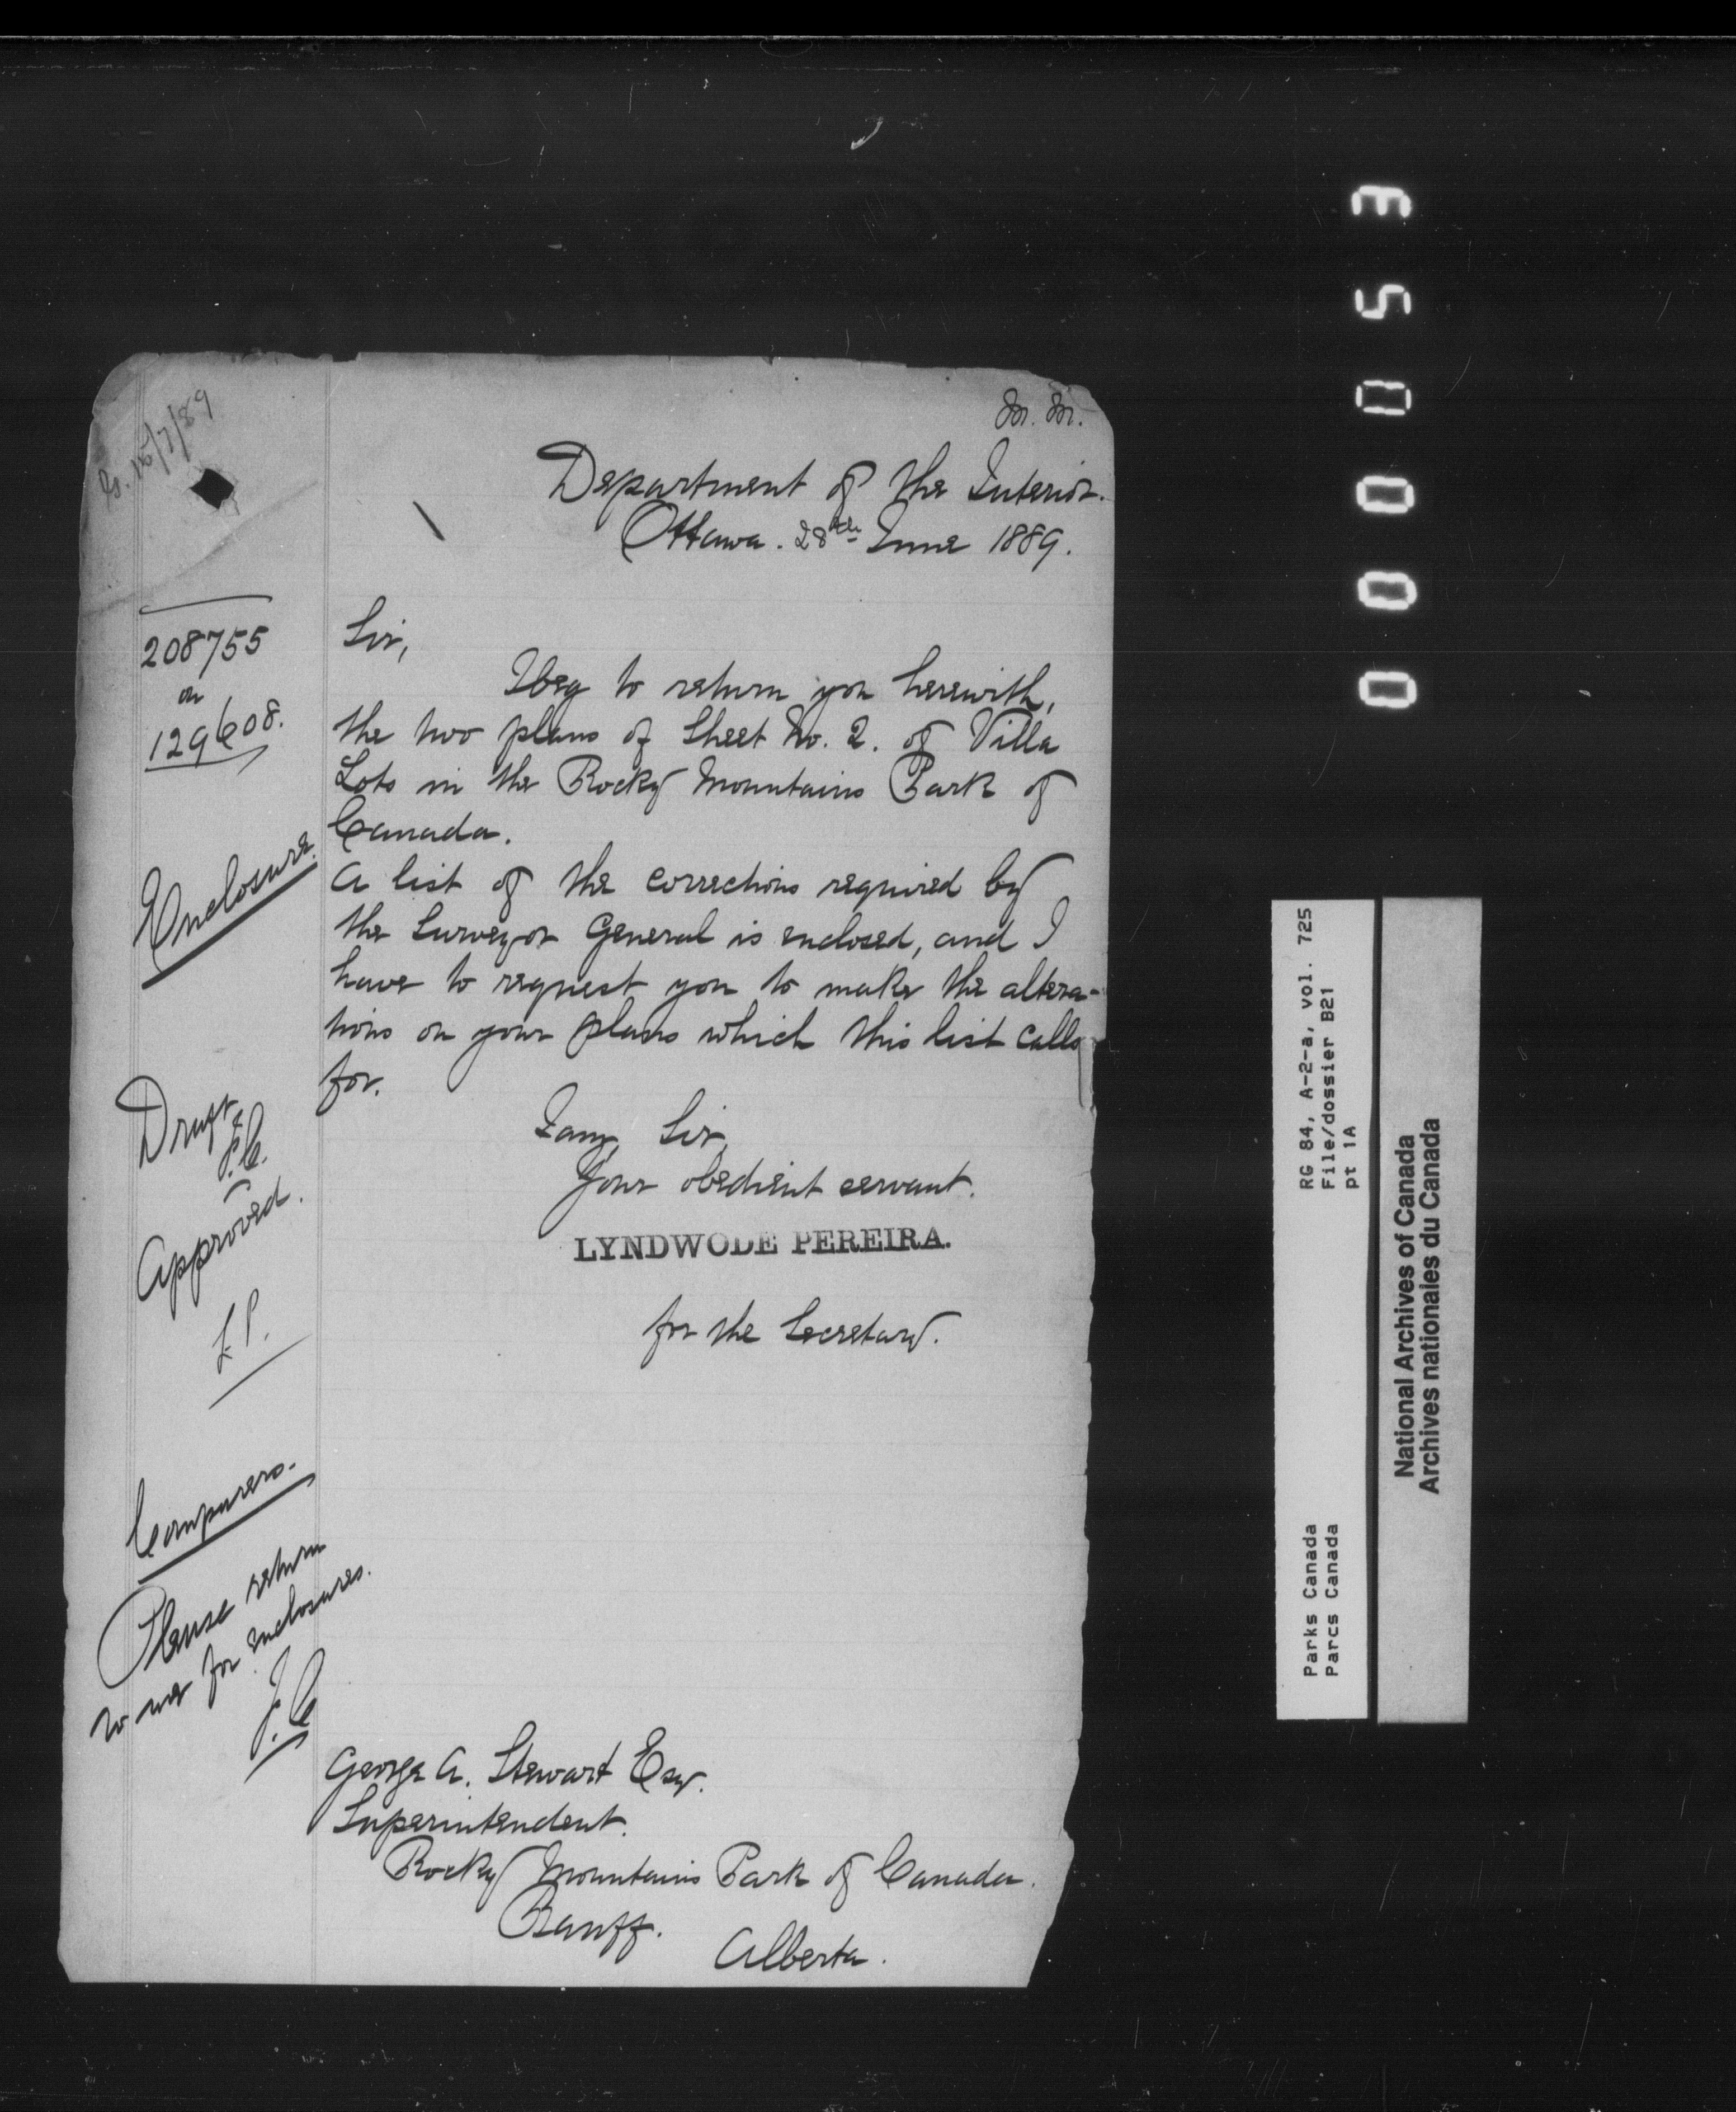 15/7/89
M. M.
Department of the Interior.
Ottawa. 28th June 1889.
208755
on
129608.
Sir,
I beg to return you herewith,
the two plans of Sheet No. 2. of Villa
Lots in the Rocky Mountains Park of
Canada.
Enclosure.
A list of the corrections required by
the Surveyor General is enclosed, and I
have to request you to make the altera-
tions on your plans which this list calls
for.
Draft
J.C.
Approved.
L.P.
I am, Sir,
Your obedient servant.
LYNDWODE PEREIRA.
for the Secretary.
Comparers.
Please return
to me for enclosures.
J.C
George A. Stewart Esq.
Superintendent.
Rocky Mountains Park of Canada.
Banff.
Alberta.
0000053
RG 84, A-2-a, vol. 725
File/dossier B21
pt 1A
Parks Canada
Parcs Canada
National Archives of Canada
Archives nationales du Canada